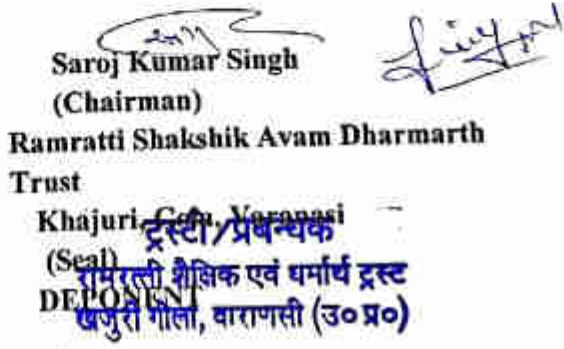 Saroj Kumar Singh
(Chairman)
Ramratti Shakshik Avam Dharmarth
Trust
Khajuri, Gola, Varanasi
ट्रस्टी/प्रबन्धक
(Seal)
रामरत्ती शैक्षिक एवं धर्मार्थ ट्रस्ट
DEPONENT
खजुरी गोला, वाराणसी (उ० प्र०)